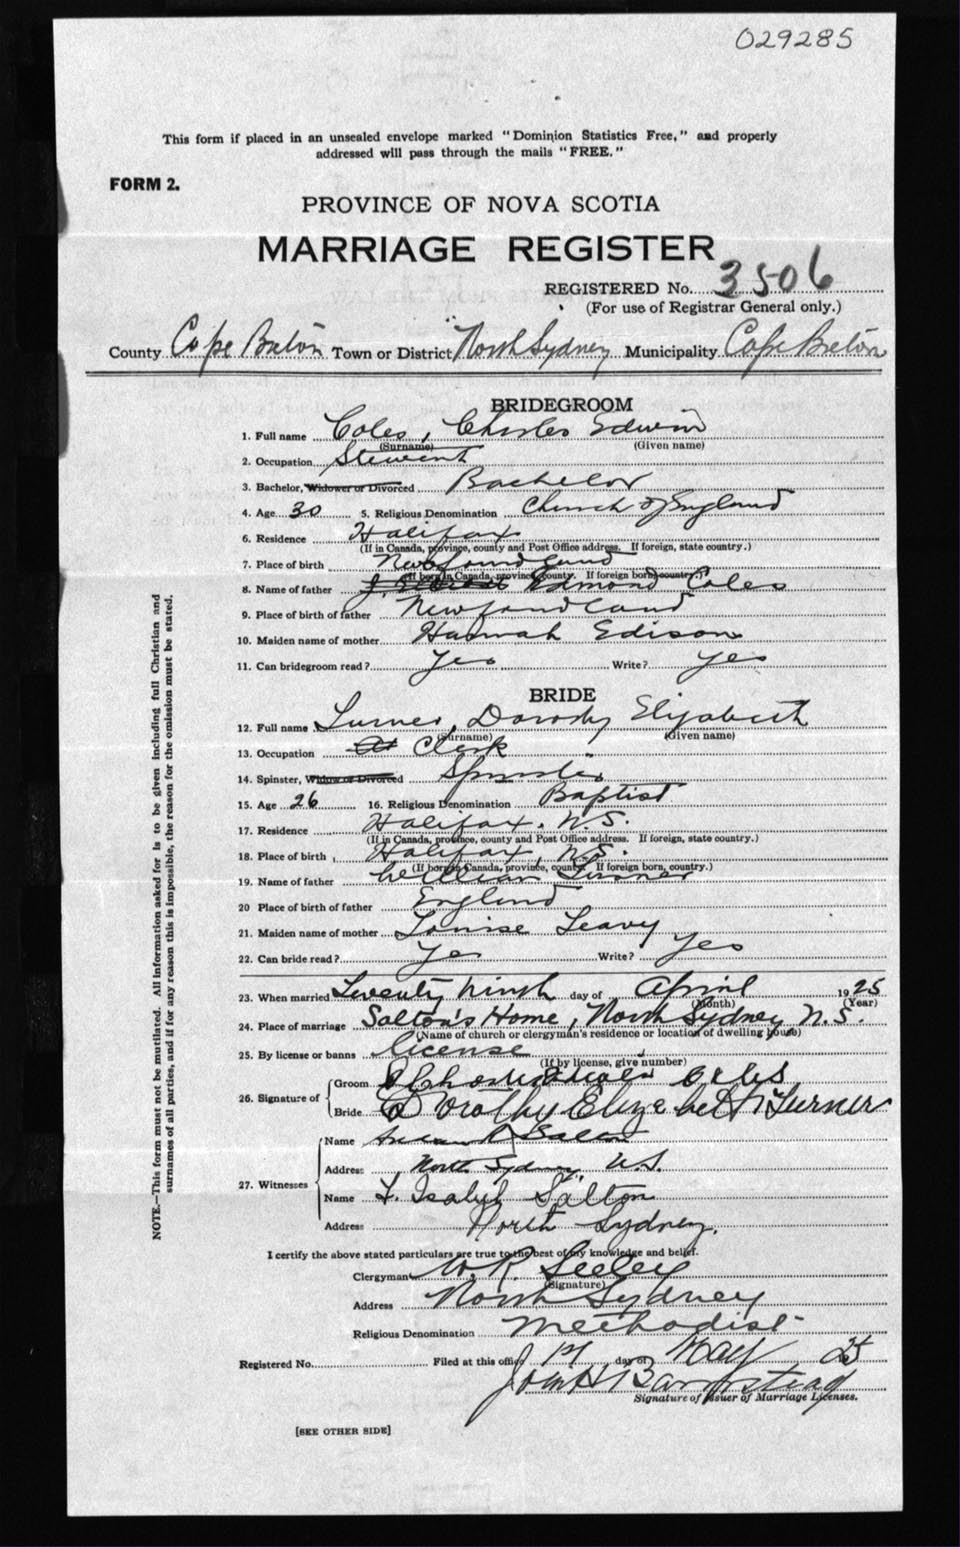 029285
This form if placed in an unsealed envelope marked "Dominion Statistics Free," and properly
addressed will pass through the mails "FREE."
FORM 2.
PROVINCE OF NOVA SCOTIA
MARRIAGE REGISTER
REGISTERED No. 3506
(For use of Registrar General only.)
County Cape Breton Town or District North Sydney Municipality Cape Breton
BRIDEGROOM
1. Full name Coles, Charles Edwin
(Surname) (Given name)
2. Occupation Stewart
3. Bachelor, Widower or Divorced Bachelor
4. Age 30 5. Religious Denomination Church of England
6. Residence Halifax
(If in Canada, province, county and Post Office address. If foreign, state country.)
7. Place of birth Newfoundland
(If born in Canada, province, county. If foreign born, country.)
8. Name of father Edmond Coles
9. Place of birth of father Newfoundland
10. Maiden name of mother Hannah Edison
11. Can bridegroom read? Yes Write? Yes
BRIDE
12. Full name Turner, Dorothy Elizabeth
(Surname) (Given name)
13. Occupation At Clerk
14. Spinster, Widow or Divorced Spinster
15. Age 26 16. Religious Denomination Baptist
17. Residence Halifax, N.S.
(If in Canada, province, county and Post Office address. If foreign, state country.)
18. Place of birth Halifax, N.S.
(If born in Canada, province, county. If foreign born, country.)
19. Name of father William Turner
20 Place of birth of father England
21. Maiden name of mother Louise Leavy
22. Can bride read? Yes Write? Yes
23. When married Twenty Ninth day of April 1925
(Month) (Year)
24. Place of marriage Salton's Home, North Sydney N.S.
(Name of church or clergyman's residence or location of dwelling house)
25. By license or banns license
(If by license, give number)
26. Signature of Groom Charles Edwin Coles
Bride Dorothy Elizabeth Turner
27. Witnesses Name Salton
Address North Sydney, N.S.
Name F. Isabel Salton
Address North Sydney.
I certify the above stated particulars are true to the best of my knowledge and belief.
Clergyman W. R. Seeley
(Signature)
Address North Sydney
Religious Denomination Methodist
Registered No. Filed at this office 1st day of May 25
John H Bampstead
Signature of Issuer of Marriage Licenses.
[SEE OTHER SIDE]
NOTE.—This form must not be mutilated. All information asked for is to be given including full Christian and
surnames of all parties, and if for any reason this is impossible, the reason for the omission must be stated.